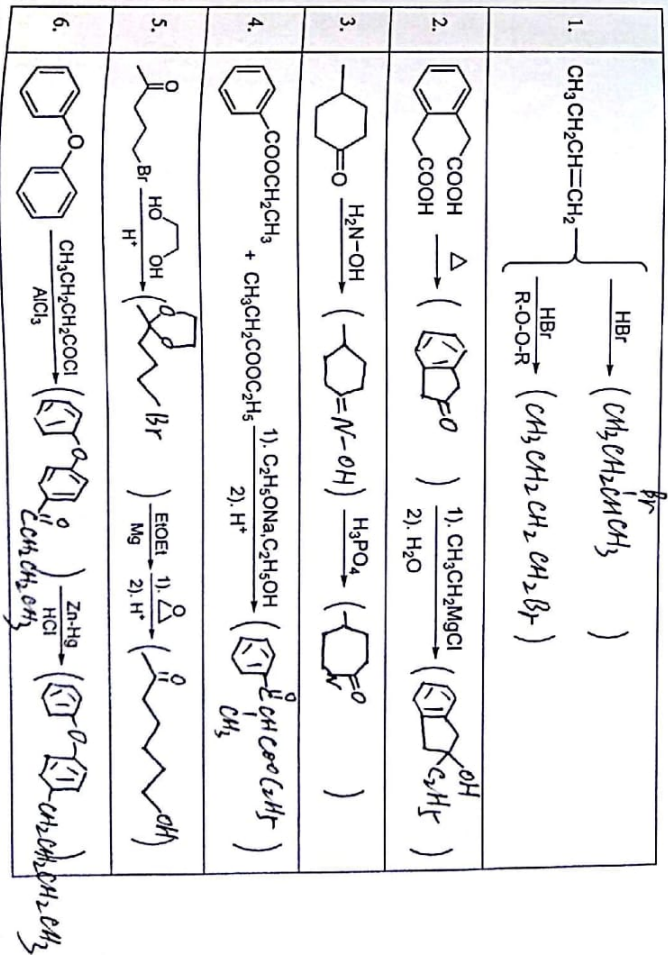 1.
CH3CH2CH=CH2
HBr
(CH3CH2CHCH3)
Br
HBr
R-O-O-R
(CH3CH2CH2CH2Br)
2.
COOH
COOH
△
( O )
1). CH3CH2MgCl
2). H2O
( OH C2H5 )
3.
O
H2N-OH
( =N-OH )
H3PO4
( O N )
4.
COOCH2CH3
+ CH3CH2COOC2H5
1). C2H5ONa,C2H5OH
2). H+
( O CCHCOOC2H5 )
CH3
5.
O
Br
HO
OH
H+
( O O Br )
EtOEt
Mg
1). O
2). H+
( O OH )
6.
O
CH3CH2CH2COCl
AlCl3
( O O )
CCH2CH2CH3
Zn-Hg
HCl
( O )
CH2CH2CH2CH3